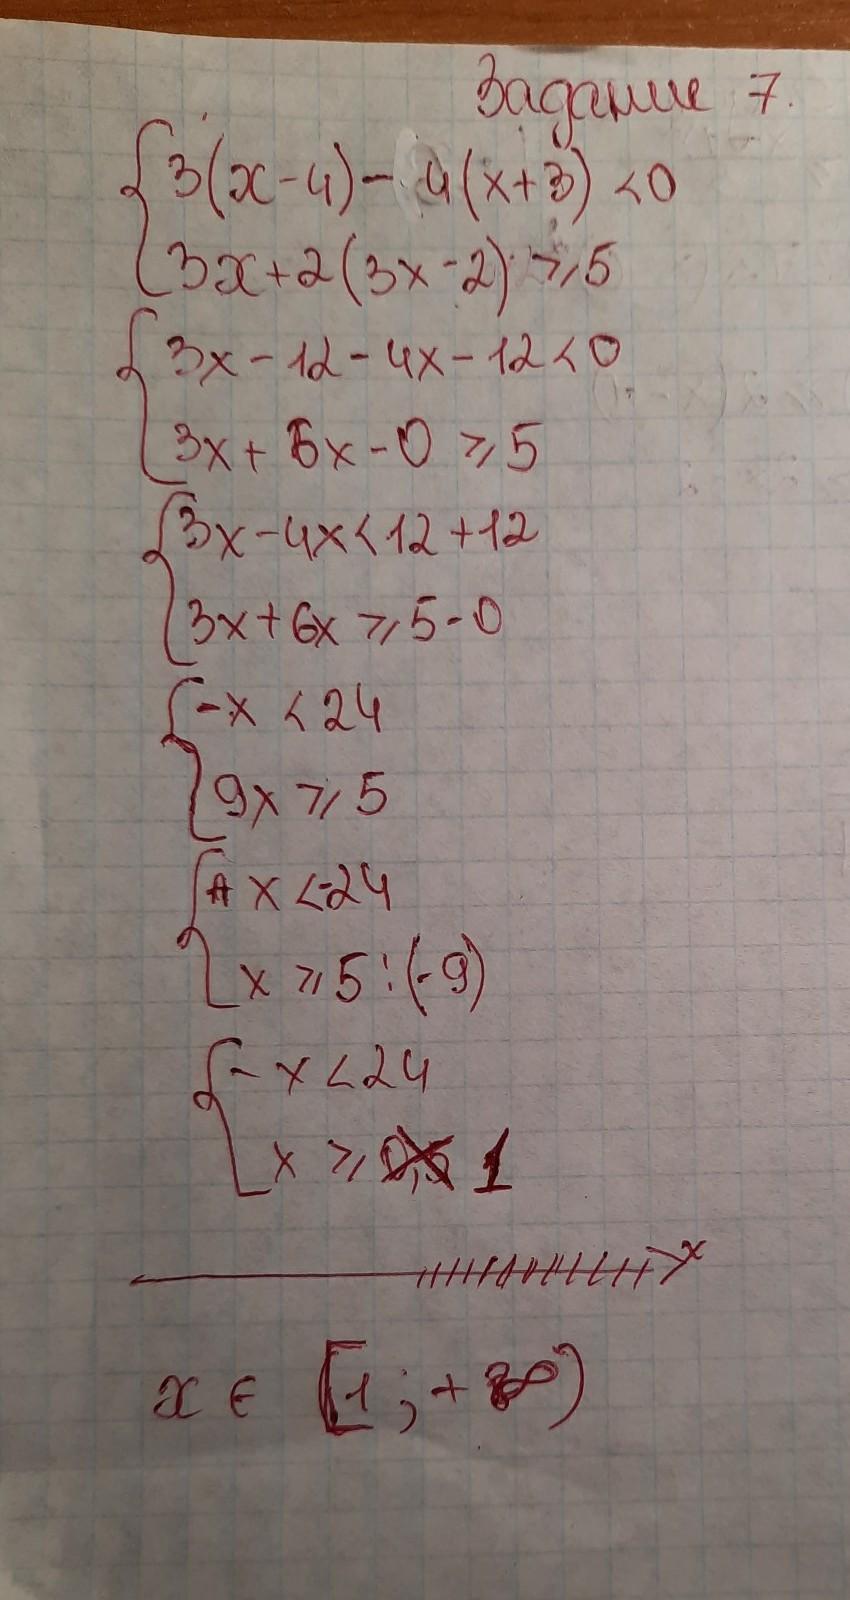 Задание 7.
3(x-4)-4(x+3)<0
3x+2(3x-2)≥5
3x-12-4x-12<0
3x+6x-0≥5
3x-4x<12+12
3x+6x≥5-0
-x<24
9x≥5
x<-24
x≥5:(-9)
-x<24
x≥ 1
x
x ∈ [1;+∞)